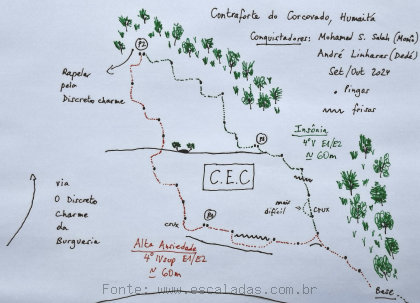 Contraforte do Corcovado, Humaitá
Conquistadores: Mohamed S. Salah (Momô)
André Linhares (Dedé)
Set/Out 2024
• Pingos
frisos
P2
Rapelar
pelo
Discreto charme
Insônia
4º V E1/E2
≈ 60m
P1
C.E.C
mais
difícil
crux
via
O Discreto
Charme
da
Burguesia
P1
crux
Alta Ansiedade
4º IVsup E1/E2
≈ 60m
Base
Fonte: www.escaladas.com.br